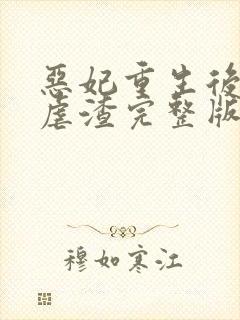 惡妃重生後
虐渣完整版
穆如寒江